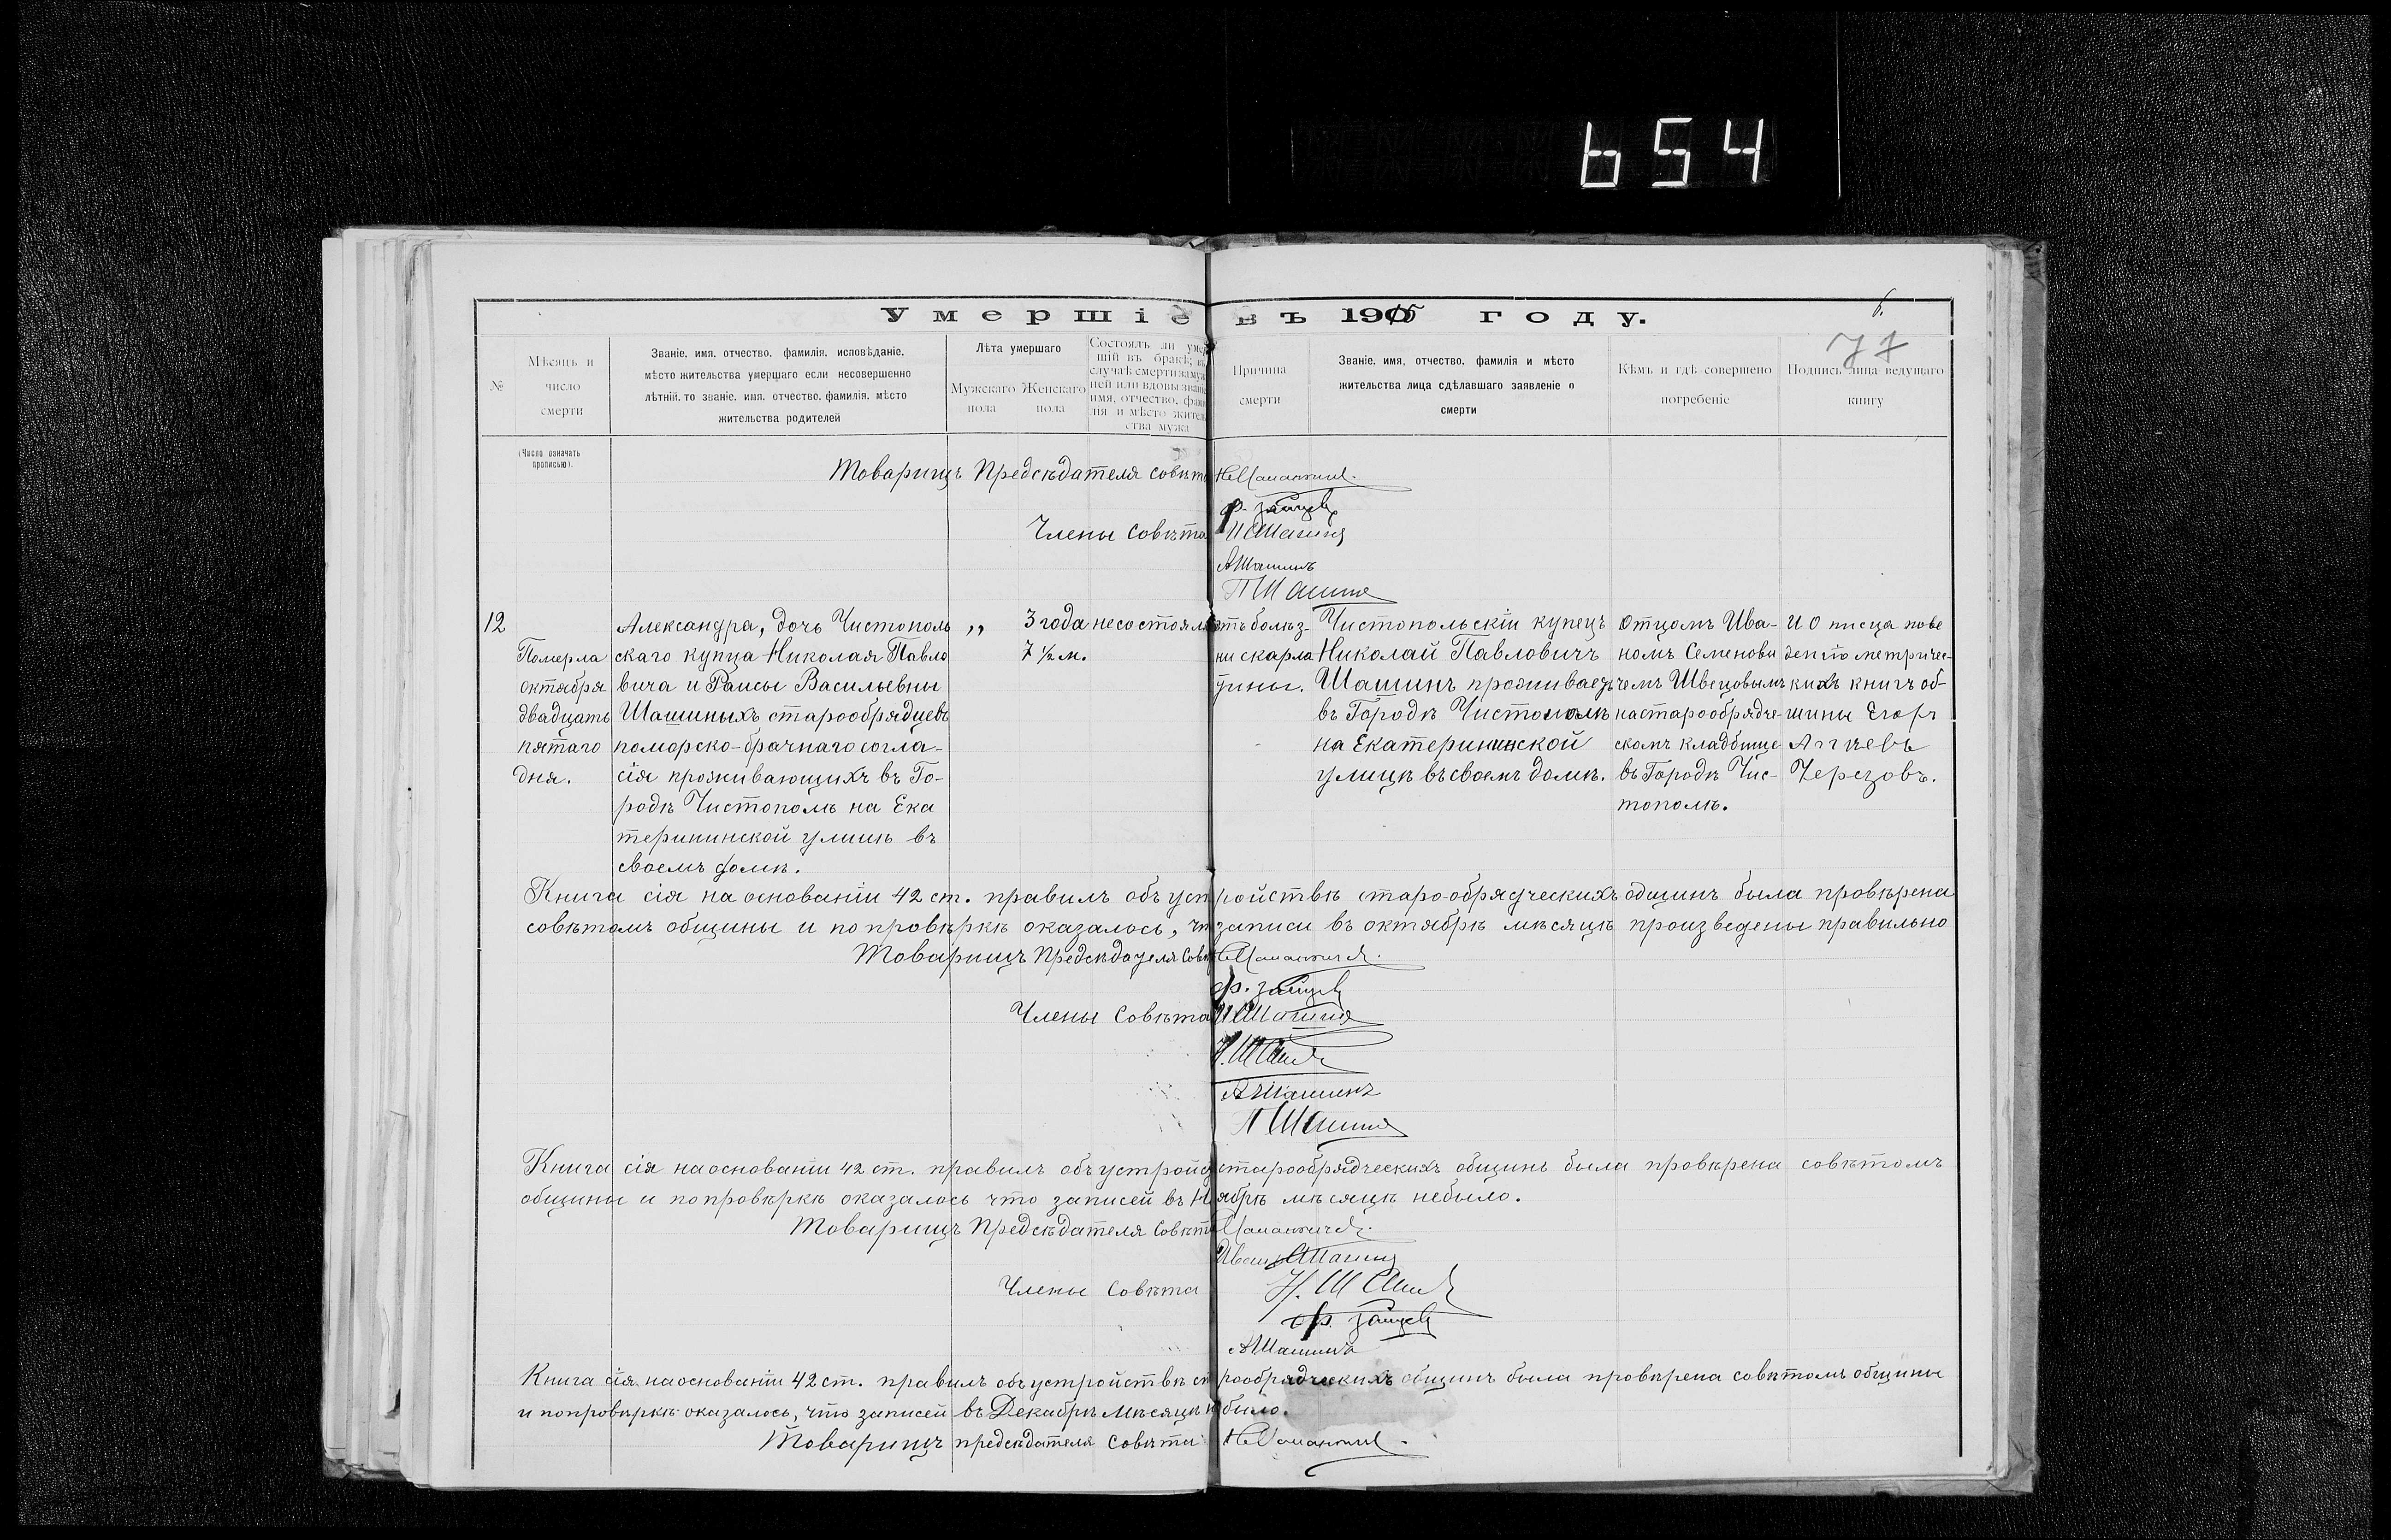 654
Умершіе въ 1905 году.
6.
77
№
Мѣсяцъ и число смерти
Званіе, имя, отчество, фамилія, исповѣданіе,
мѣсто жительства умершаго если несовершенно
лѣтній, то званіе, имя, отчество, фамилія, мѣсто
жительства родителей
Лѣта умершаго
Мужскаго пола
Женскаго пола
Состоялъ ли умер
шій въ бракѣ; въ
случаѣ смерти замуж
ней или вдовы званіе
имя, отчество, фами
лія и мѣсто житель
ства мужа
Причина
смерти
Званіе, имя, отчество, фамилія и мѣсто
жительства лица сдѣлавшаго заявленіе о
смерти
Кѣмъ и гдѣ совершено
погребеніе
Подпись лица ведущаго
книгу
(Число означать
прописью).
Товарищъ Предсѣдателя совѣта
Ф. Зайцев
Члены Совѣта
И Шашинъ
АШашинъ
П Шашинъ
12
Померла
октября
двадцать
пятаго
дня.
Александра, дочь Чистополь
скаго купца Николая Павло
вича и Раисы Васильевны
Шашиныхъ старообрядцевъ
поморско-брачнаго согла-
сія проживающихъ въ Го-
родѣ Чистополѣ на Ека
терининской улицѣ въ
своемъ домѣ.
„
3 года
7 ½ м.
несостояла
отъ болѣз-
ни скарла
тины.
Чистопольскій купецъ
Николай Павловичъ
Шашинъ проживаетъ
въ Городѣ Чистополѣ
на Екатерининской
улицѣ въ своемъ домѣ.
Отцомъ Ива-
номъ Семенови
чемъ Швецовымъ
на старообрядче-
скомъ кладбище
въ Городѣ Чис-
тополѣ.
И О писца по ве
денію метричес-
кихъ книгъ об-
щины Егоръ
Черезовъ.
Книга сія на основаніи 42 ст. правилъ объ устройствѣ старо-обрядческихъ общинъ была провѣрена
совѣтомъ общины и по провѣркѣ оказалось, что записи въ октябрѣ мѣсяцѣ произведены правильно
Товарищъ Предсѣдателя Совѣта
Ф. Зайцев
Члены Совѣта
И Шашинъ
Н. Шашинъ
АШашинъ
П Шашинъ
Книга сія на основаніи 42 ст. правилъ объ устройст старообрядческихъ общинъ была провѣрена совѣтомъ
общины и по провѣркѣ оказалось что записей въ Ноябрѣ мѣсяцѣ небыло.
Товарищъ Предсѣдателя Совѣта
Иванъ Шашинъ
Члены Совѣта
Н. Шашинъ
Ф. Зайцев
АШашинъ
Книга сія на основаніи 42 ст. правилъ объ устройствѣ старообрядческихъ общинъ была провѣрена совѣтомъ общины
и по провѣркѣ оказалось, что записей въ Декабрѣ мѣсяцѣ не было.
Товарищъ предсѣдателя Совѣта